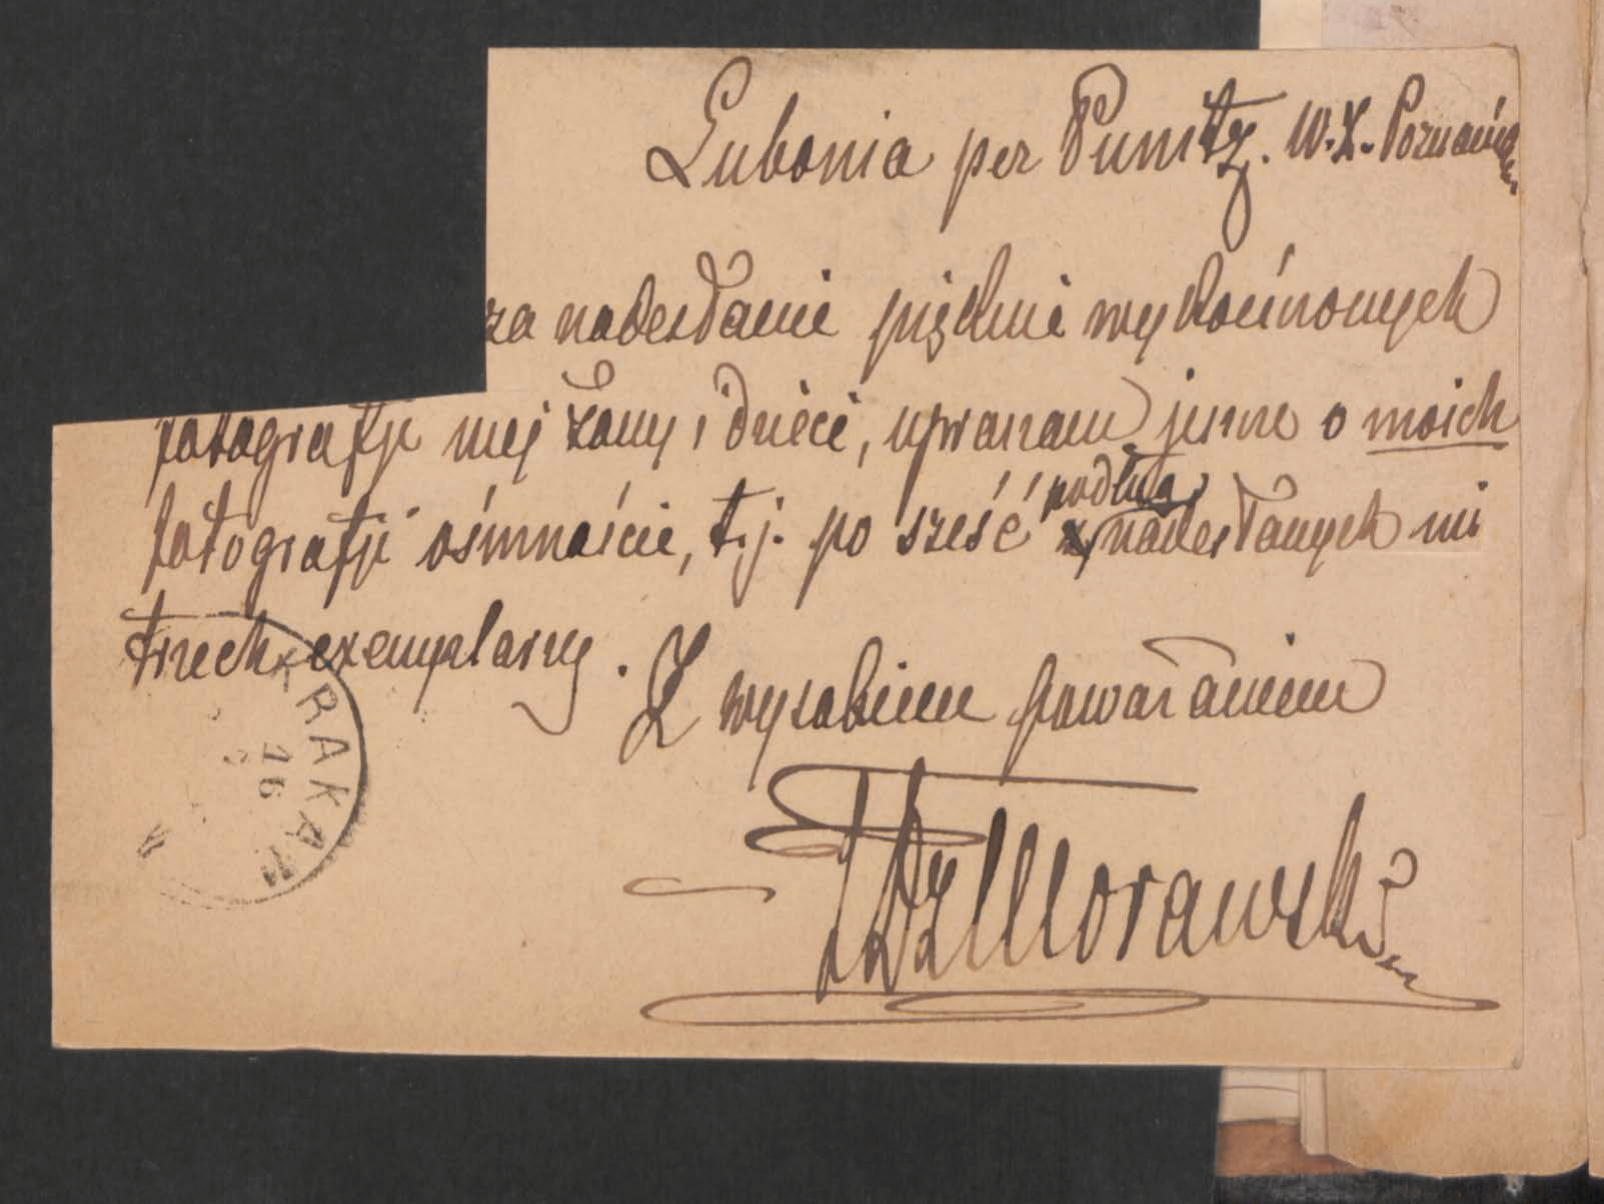 Lubonia per Punitz. W. X. Poznańskie
za nadesłanie pięknie wykończonych
fotografji mej żony i dzieci, upraszam jeszcze o moich
fotografji ośmnaście, t.j. po sześć podług nadesłanych mi
trzech exemplarzy.
Z wysokiem poważaniem
Morawski
KRAKAU
16